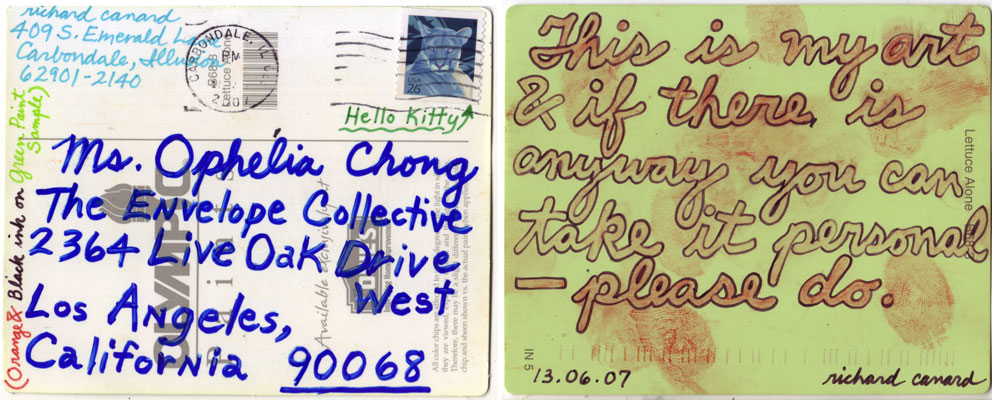 richard canard
409 S. Emerald Lane
Carbondale, Illusion
62901-2140
CARBONDALE, IL
PM
Lettuce Alone
USA
26
Hello Kitty
(Orange & Black ink on Green Paint Sample)
Ms. Ophelia Chong
The Envelope Collective
2364 Live Oak Drive
West
Los Angeles,
California 90068
OLYMPIC
Paints
Available exclusively at
LOWE'S
This is my art
& if there is
anyway you can
take it personal
— please do.
Lettuce Alone
IN 5
13.06.07
richard canard